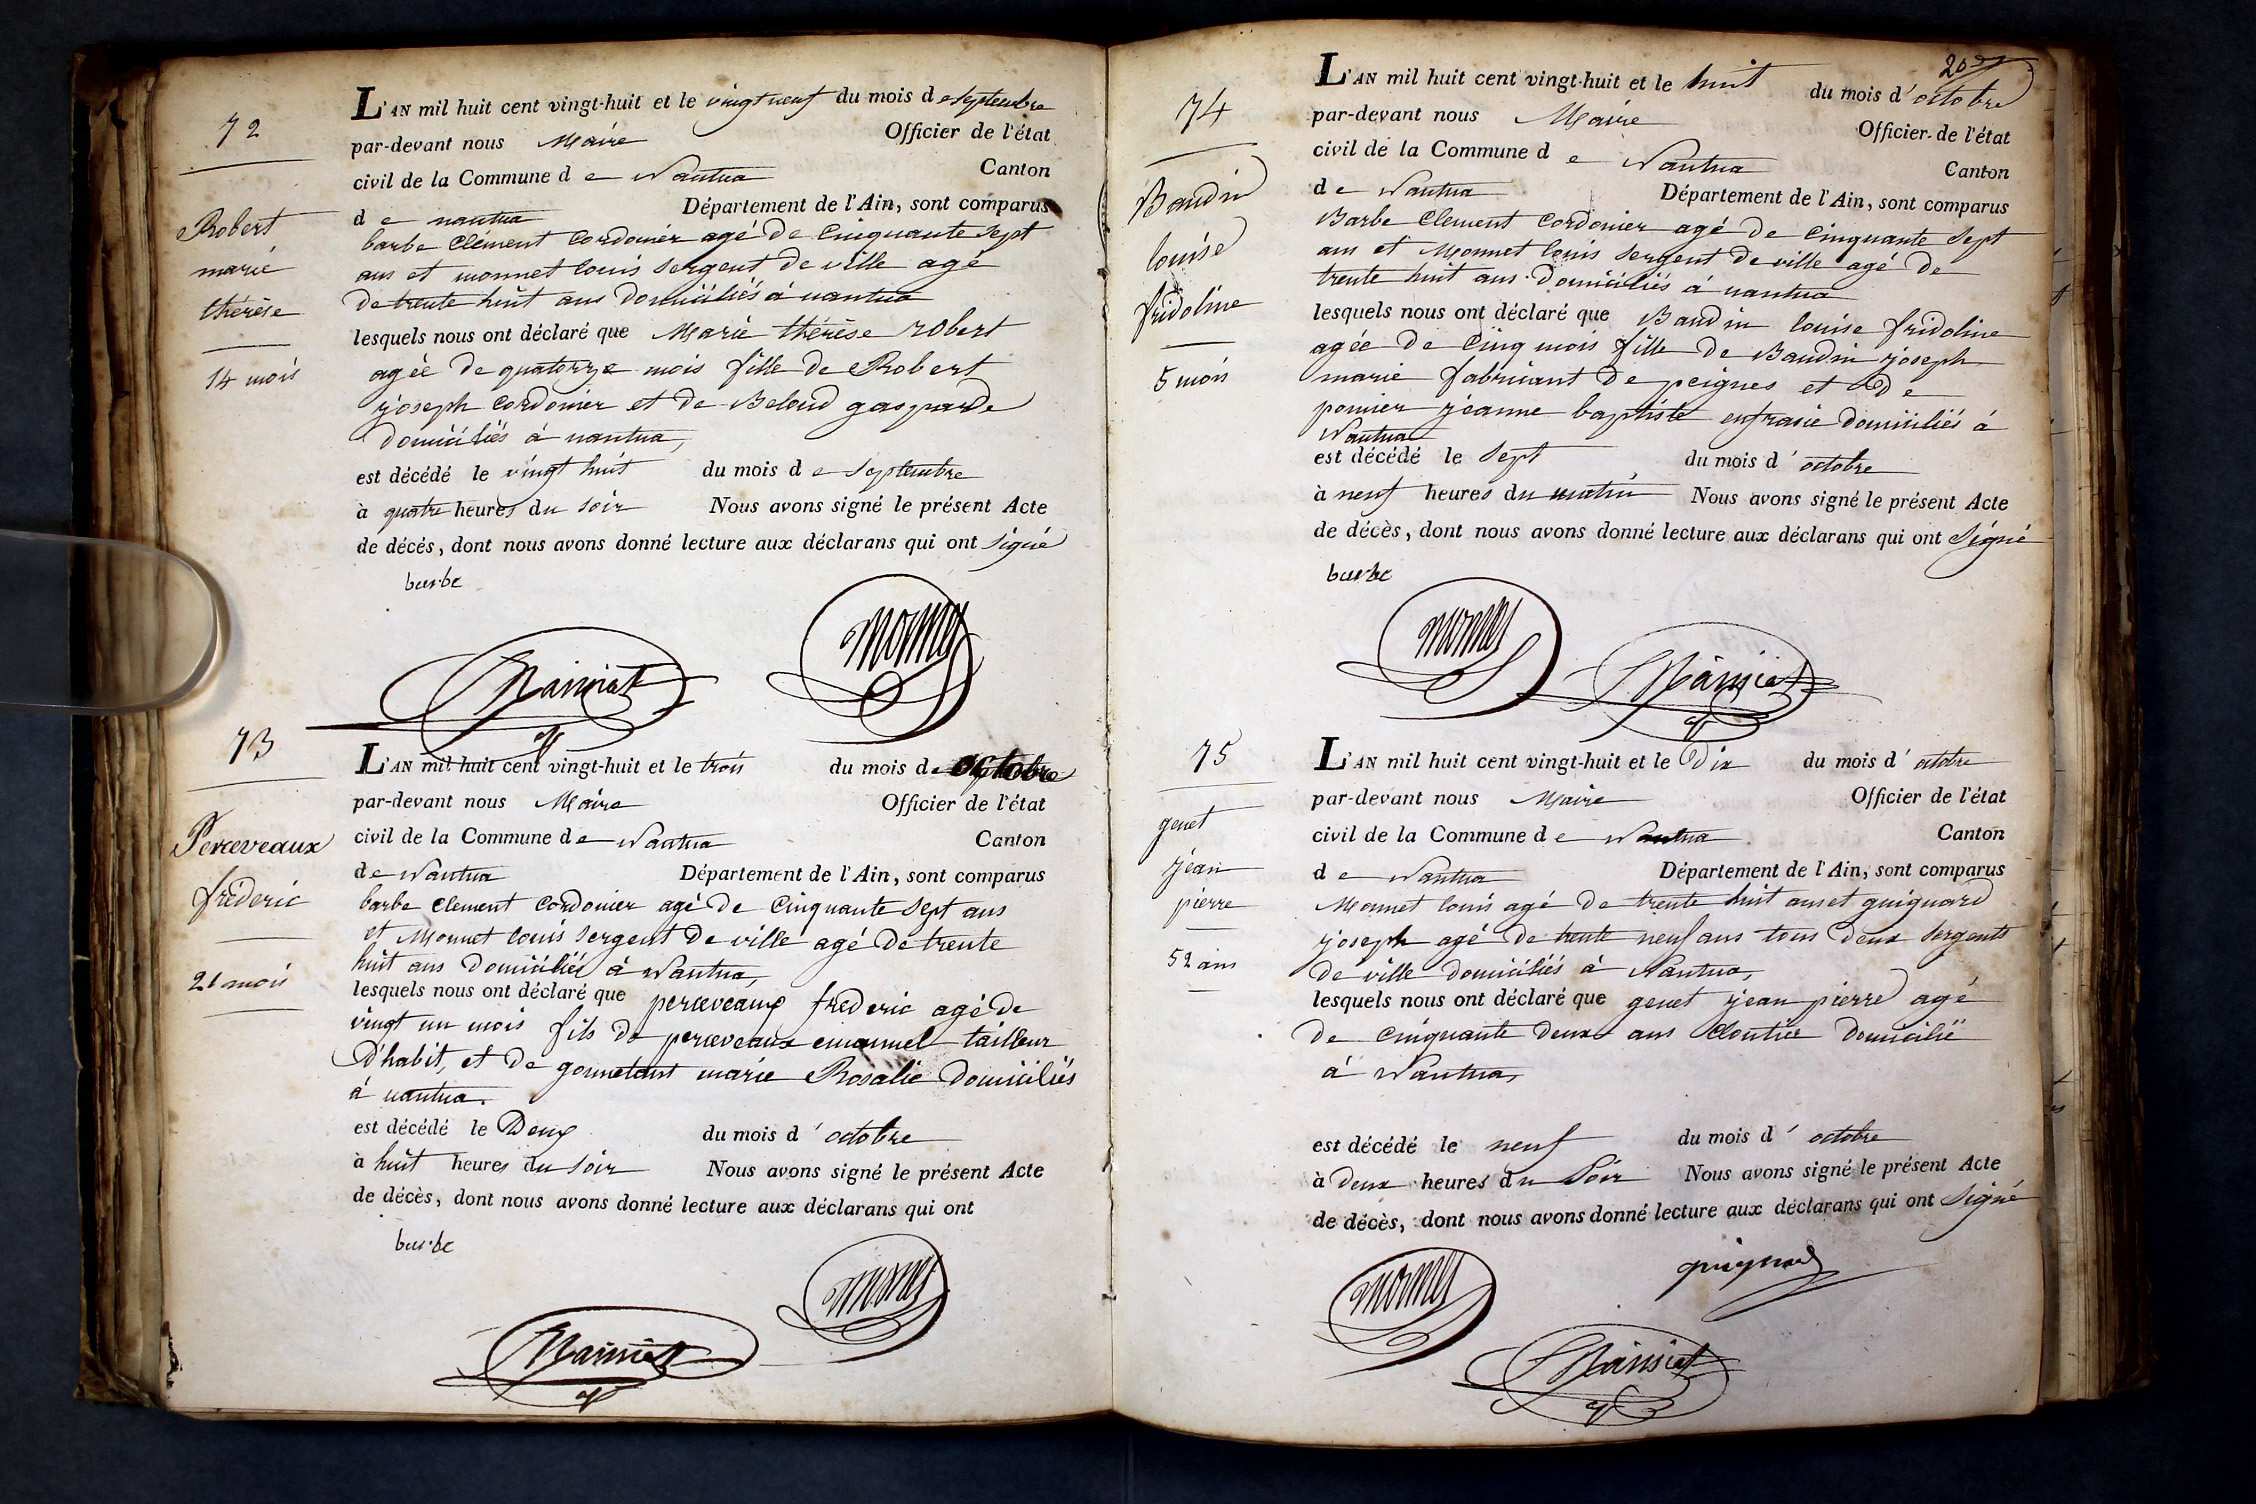 72
Robert
marie
thérèse
14 mois
L'AN mil huit cent vingt-huit et le vingt neuf du mois de septembre
par-devant nous Maire Officier de l'état
civil de la Commune de Nantua Canton
de nantua Département de l'Ain, sont comparus
barbe Clément Cordonier agé de Cinquante Sept
ans et monnet louis Sergent de ville agé
de trente huit ans domiciliés à nantua
lesquels nous ont déclaré que Marie thérèse robert
agée de quatorze mois fille de Robert
joseph Cordonier et de Beloud gasparde
domiciliés à nantua,
est décédé le vingt huit du mois de septembre
à quatre heures du soir Nous avons signé le présent Acte
de décés, dont nous avons donné lecture aux déclarans qui ont signé
barbe
monnet
73
Perceveaux
fréderic
21 mois
L'AN mil huit cent vingt-huit et le trois du mois de octobre
par-devant nous Maire Officier de l'état
civil de la Commune de Nantua Canton
de Nantua Département de l'Ain, sont comparus
barbe clement Cordonier agé de Cinquante Sept ans
et Monnet louis Sergent de ville agé de trente
huit ans domiciliés à Nantua,
lesquels nous ont déclaré que perceveaux frederic agé de
vingt un mois fils de perceveaux emanuel tailleur
d'habit, et de gonnetant marie Rosalie domiciliés
à nantua.
est décédé le Deux du mois d'octobre
à huit heures du soir Nous avons signé le présent Acte
de décès, dont nous avons donné lecture aux déclarans qui ont
barbe
monnet
74
Baudin
louise
fridoline
5 mois
L'AN mil huit cent vingt-huit et le huit du mois d'octobre
par-devant nous Maire Officier de l'état
civil de la Commune de Nantua Canton
de Nantua Département de l'Ain, sont comparus
Barbe Clement Cordonier agé de Cinquante Sept
ans et Monnet louis Sergent de ville agé de
trente huit ans domiciliés à nantua
lesquels nous ont déclaré que Baudin louise fridoline
agée de Cinq mois fille de Baudin joseph
marie fabricant de peignes et de
ponier jeanne baptiste enfrasie domiciliés à
Nantua
est décédé le Sept du mois d'octobre
à neuf heures du matin Nous avons signé le présent Acte
de décès, dont nous avons donné lecture aux déclarans qui ont Signé
barbe
monnet
75
genet
jean
pierre
52 ans
L'AN mil huit cent vingt-huit et le Dix du mois d'octobre
par-devant nous Maire Officier de l'état
civil de la Commune de Nantua Canton
de Nantua Département de l'Ain, sont comparus
Monnet louis agé de trente huit ans et guignard
joseph agé de trente neuf ans tous deux Sergents
de ville domiciliés à Nantua,
lesquels nous ont déclaré que genet jean pierre agé
de Cinquante deux ans Cloutier domicilié
à Nantua,
est décédé le neuf du mois d'octobre
à deux heures du Soir Nous avons signé le présent Acte
de décès, dont nous avons donné lecture aux déclarans qui ont Signé
monnet
guignard